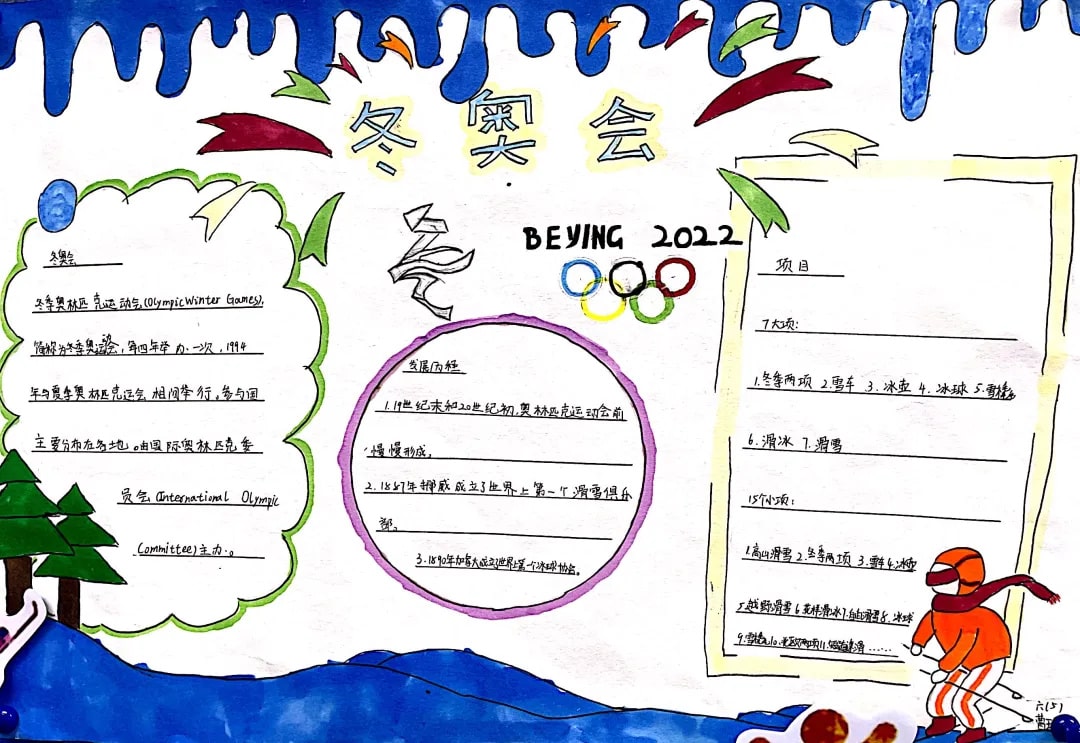 冬奥会
BEYING 2022
冬奥会
冬季奥林匹克运动会(Olympic Winter Games),
简称为冬季奥运会,年四年举办一次,1994
年与夏季奥林匹克运会相间举行,参与国
主要分布在各地。由国际奥林匹克委
员会(International Olympic
Committee)主办。
发展历程
1.19世纪末和20世纪初,奥林匹克运动会前
慢慢形成,
2.1887年挪威成立了世界上第一个滑雪俱乐
部。
3.1890年加拿大成立世界上第一个冰球协会。
项目
7大项:
1.冬季两项 2.雪车 3.冰壶 4.冰球 5.雪橇
6.滑冰 7.滑雪
15个小项:
1.高山滑雪 2.冬季两项 3.雪车 4.冰壶
5.越野滑雪 6.花样滑冰 7.自由滑雪 8.冰球
9.雪橇 10.北欧两项 11.短道速滑……
六(5)
曹